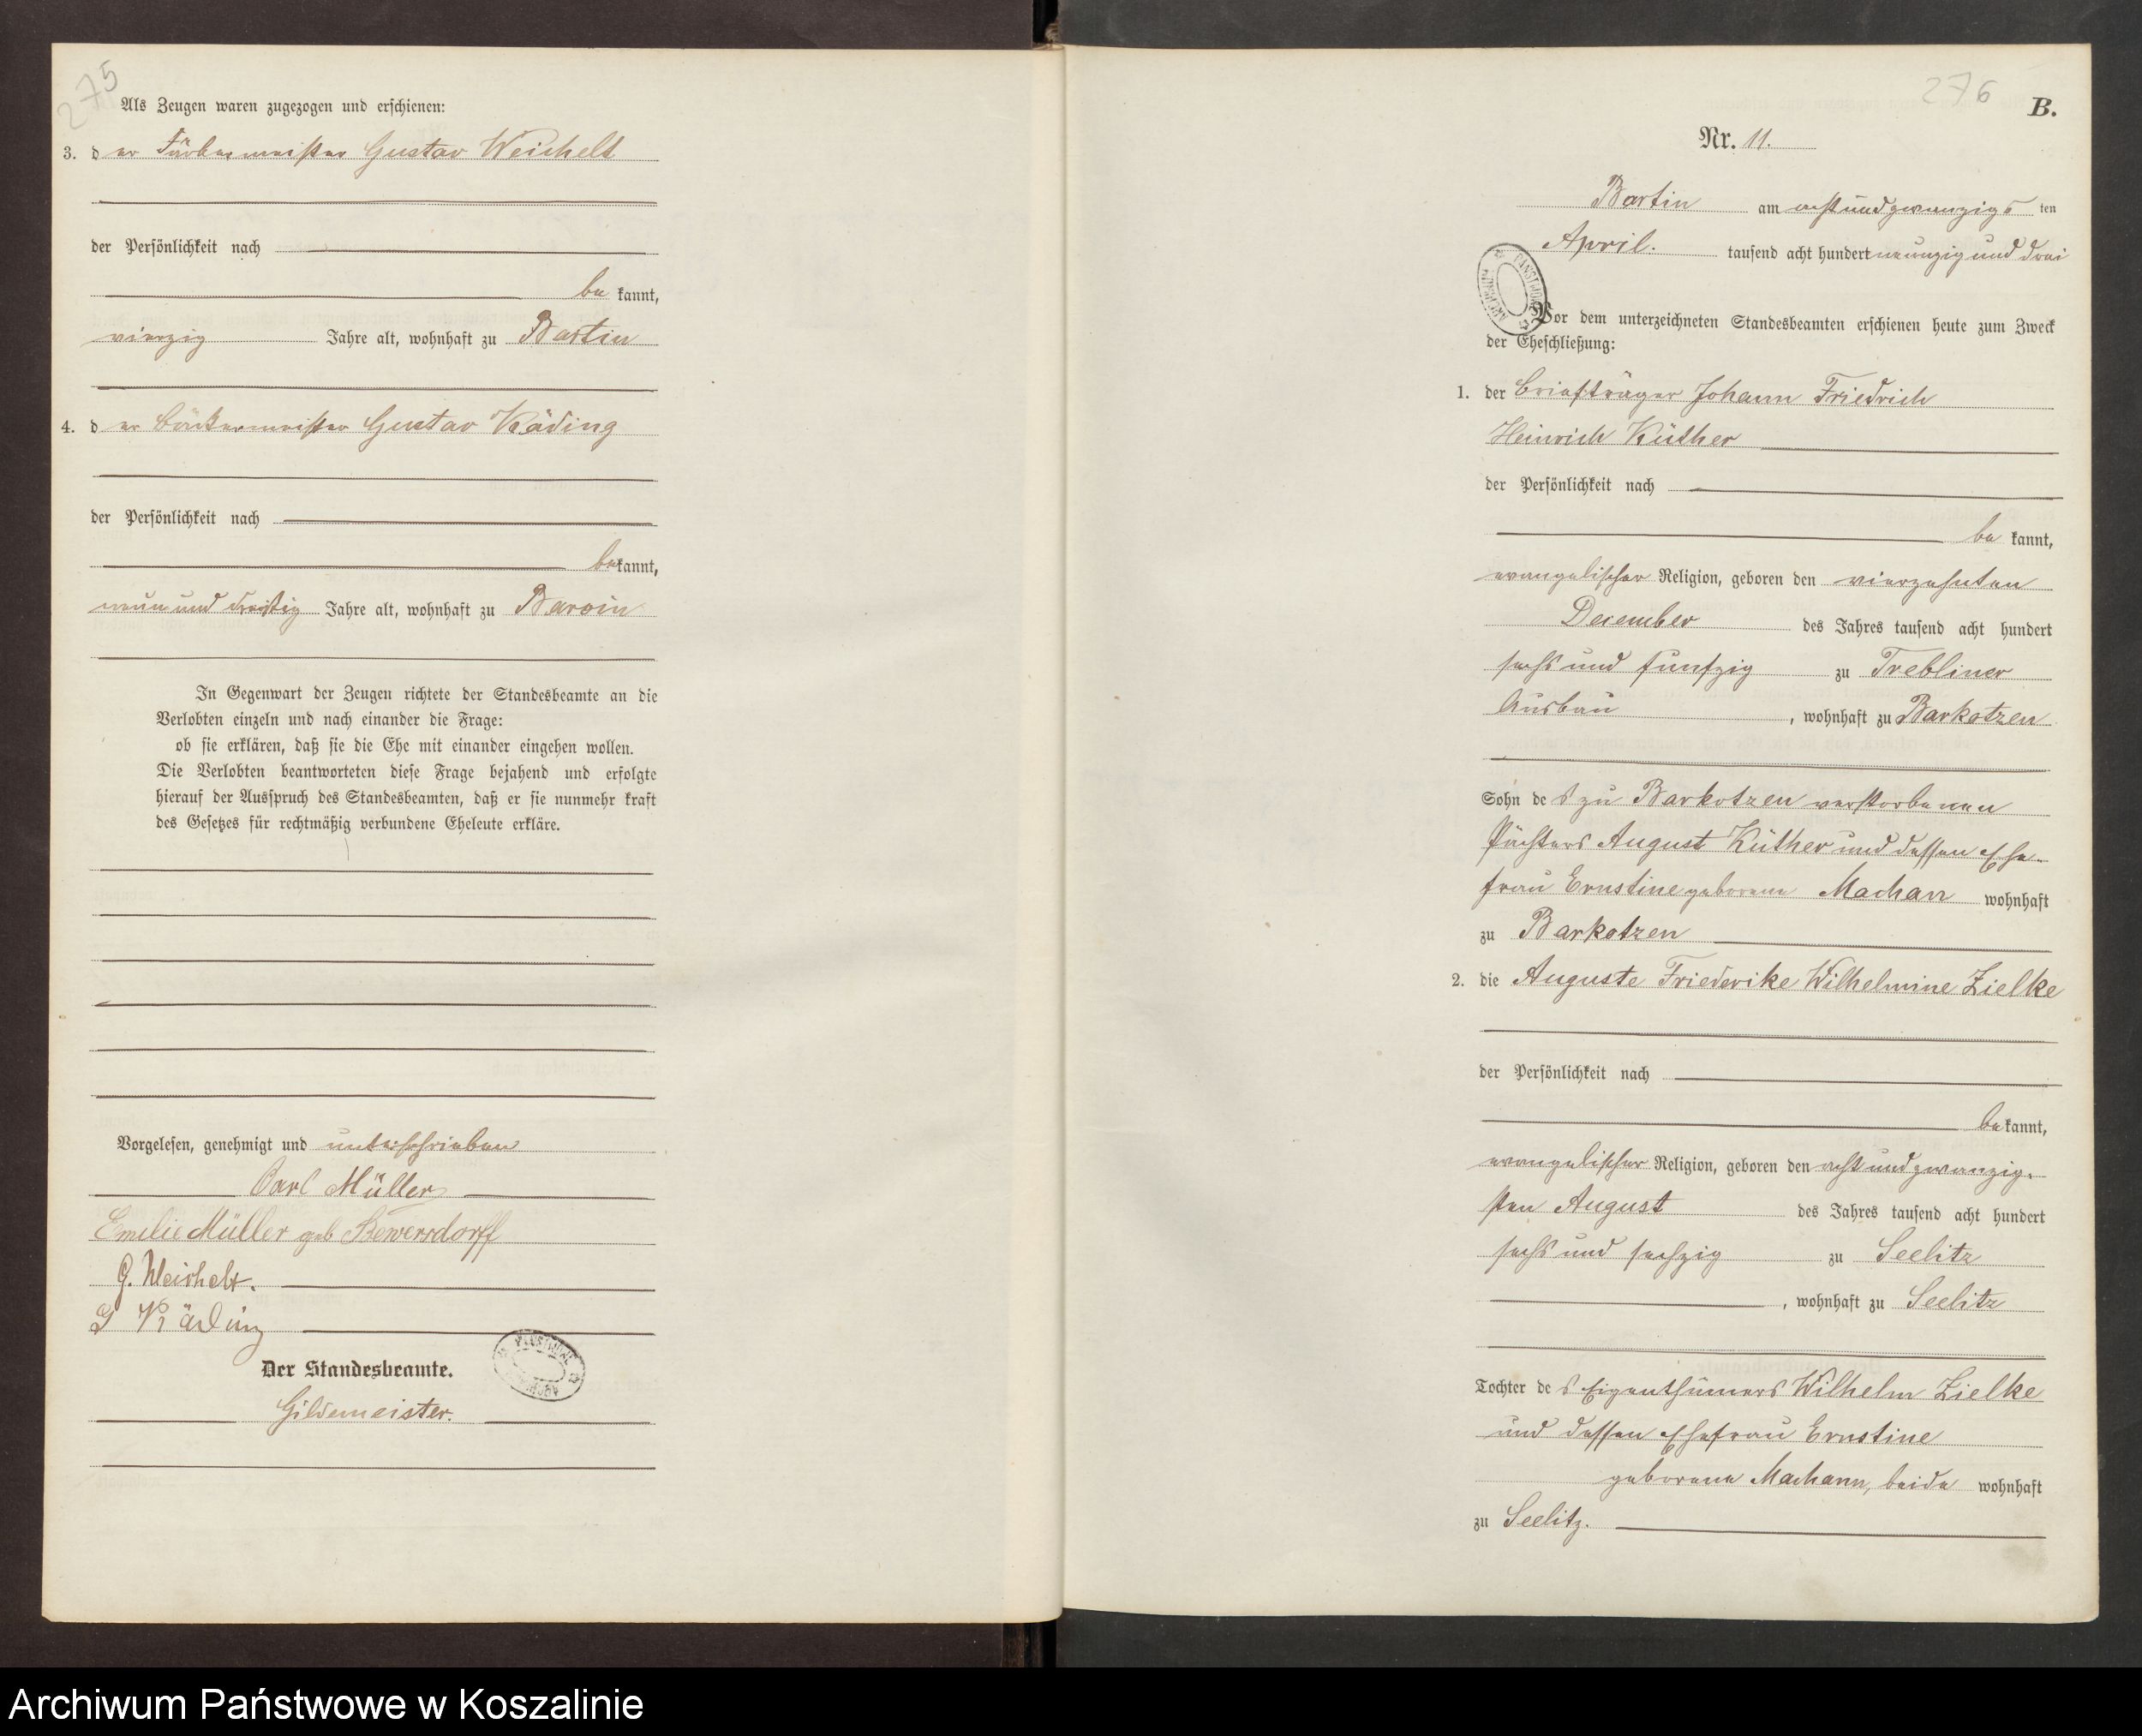 275
Als Zeugen waren zugezogen und erschienen:
3. der Färbermeister Gustav Weichelt
der Persönlichkeit nach
bekannt,
vierzig Jahre alt, wohnhaft zu Bartin
4. der Bäckermeister Gustav Käding
der Persönlichkeit nach
bekannt,
neun und dreißig Jahre alt, wohnhaft zu Barvin
In Gegenwart der Zeugen richtete der Standesbeamte an die
Verlobten einzeln und nach einander die Frage:
ob sie erklären, daß sie die Ehe mit einander eingehen wollen.
Die Verlobten beantworteten diese Frage bejahend und erfolgte
hierauf der Ausspruch des Standesbeamten, daß er sie nunmehr kraft
des Gesetzes für rechtmäßig verbundene Eheleute erkläre.
Vorgelesen, genehmigt und unterschrieben
Carl Müller
Emilie Müller geb Bewersdorff
G. Weichelt.
G Käding
Der Standesbeamte.
Gildemeister.
276
B.
Nr. 11.
Bartin am achtundzwanzigsten
April. tausend acht hundert neunzig und drei
Vor dem unterzeichneten Standesbeamten erschienen heute zum Zweck
der Eheschließung:
1. der Briefträger Johann Friedrich
Heinrich Küther
der Persönlichkeit nach
bekannt,
evangelischer Religion, geboren den vierzehnten
December des Jahres tausend acht hundert
sechs und funfzig zu Trebliner
Ausbau, wohnhaft zu Barkotzen
Sohn des zu Barkotzen verstorbenen
Pächters August Küther und dessen Ehe-
frau Ernstine geborene Machan wohnhaft
zu Barkotzen
2. die Auguste Friederike Wilhelmine Zielke
der Persönlichkeit nach
bekannt,
evangelischer Religion, geboren den achtundzwanzig-
sten August des Jahres tausend acht hundert
sechs und sechzig zu Seelitz
, wohnhaft zu Seelitz
Tochter des Eigenthümers Wilhelm Zielke
und dessen Ehefrau Ernstine
geborene Machann, beide wohnhaft
zu Seelitz.
Archiwum Państwowe w Koszalinie